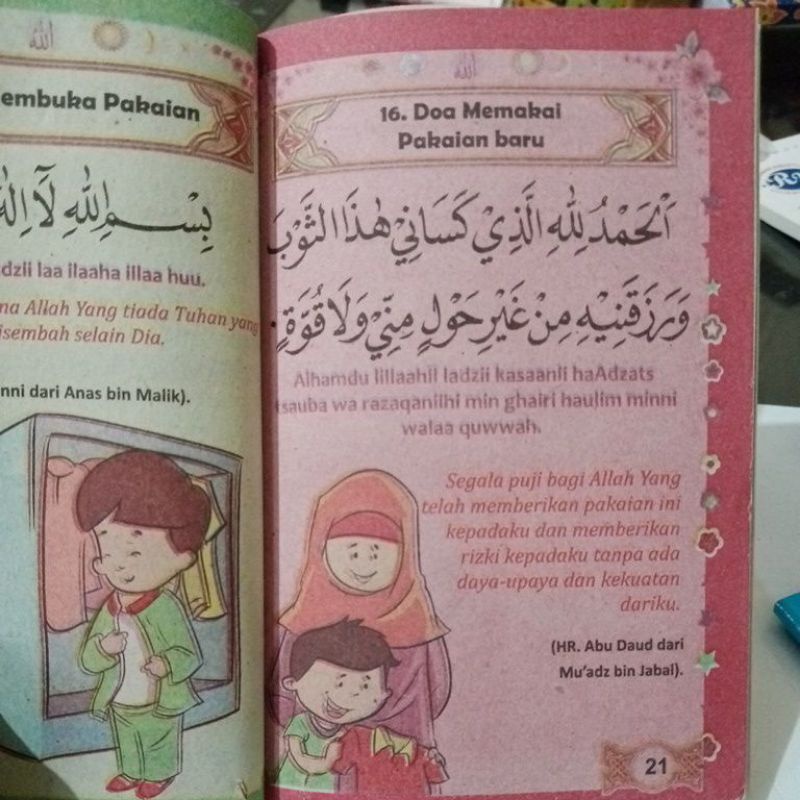 الله
embuka Pakaian
بِسْمِ اللهِ لَآ اِلٰهَ
dzii laa ilaaha illaa huu.
na Allah Yang tiada Tuhan yang
isembah selain Dia.
nni dari Anas bin Malik).
الله
16. Doa Memakai
Pakaian baru
اَلْحَمْدُ لِلّٰهِ الَّذِيْ كَسَانِيْ هٰذَا الثَّوْبَ
وَرَزَقَنِيْهِ مِنْ غَيْرِ حَوْلٍ مِنِّيْ وَلَا قُوَّةٍ.
Alhamdu lillaahil ladzii kasaanii haAdzats
tsauba wa razaqaniihi min ghairi haulim minni
walaa quwwah.
Segala puji bagi Allah Yang
telah memberikan pakaian ini
kepadaku dan memberikan
rizki kepadaku tanpa ada
daya-upaya dan kekuatan
dariku.
(HR. Abu Daud dari
Mu'adz bin Jabal).
21